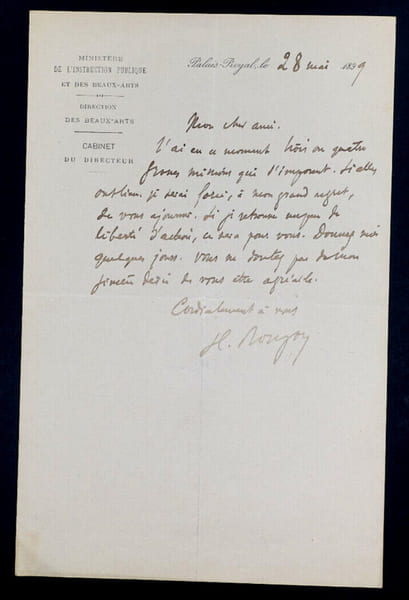 MINISTÈRE
DE L'INSTRUCTION PUBLIQUE
ET DES BEAUX-ARTS
DIRECTION
DES BEAUX-ARTS
CABINET
DU DIRECTEUR
Palais-Royal, le 28 mai 1899
Mon cher ami.
J'ai en ce moment trois ou quatre
grosses missions qui s'imposent. Si elles
ont lieu, je serai forcé, à mon grand regret,
de vous ajourner. Si je retrouve
liberté d'action, ce sera pour vous. Donnez moi
quelques jours. Vous ne doutez pas de mon
sincère désir de vous être agréable.
Cordialement à vous
H. Roujon